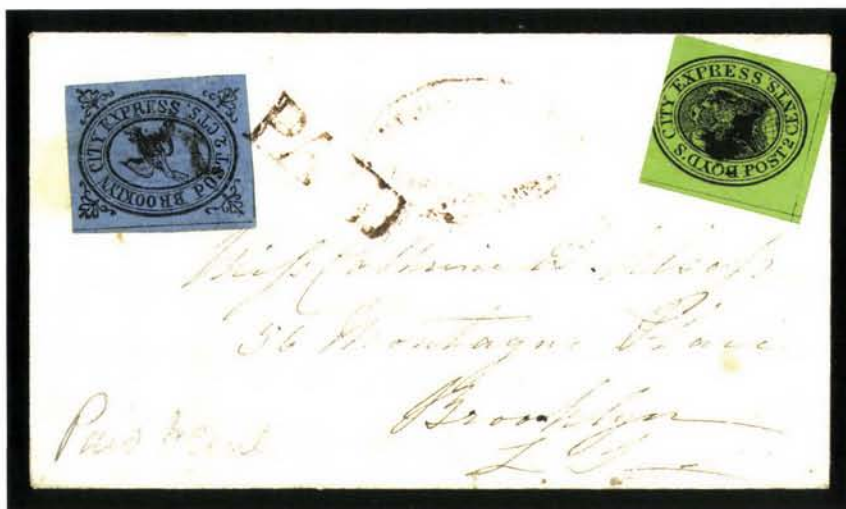 BROOKLYN CITY EXPRESS. POST. 2 CTS.
BOYD'S. CITY EXPRESS POST 2 CENTS
PAID
Miss Catherine
56 Montague Place
Brooklyn
L I
Paid